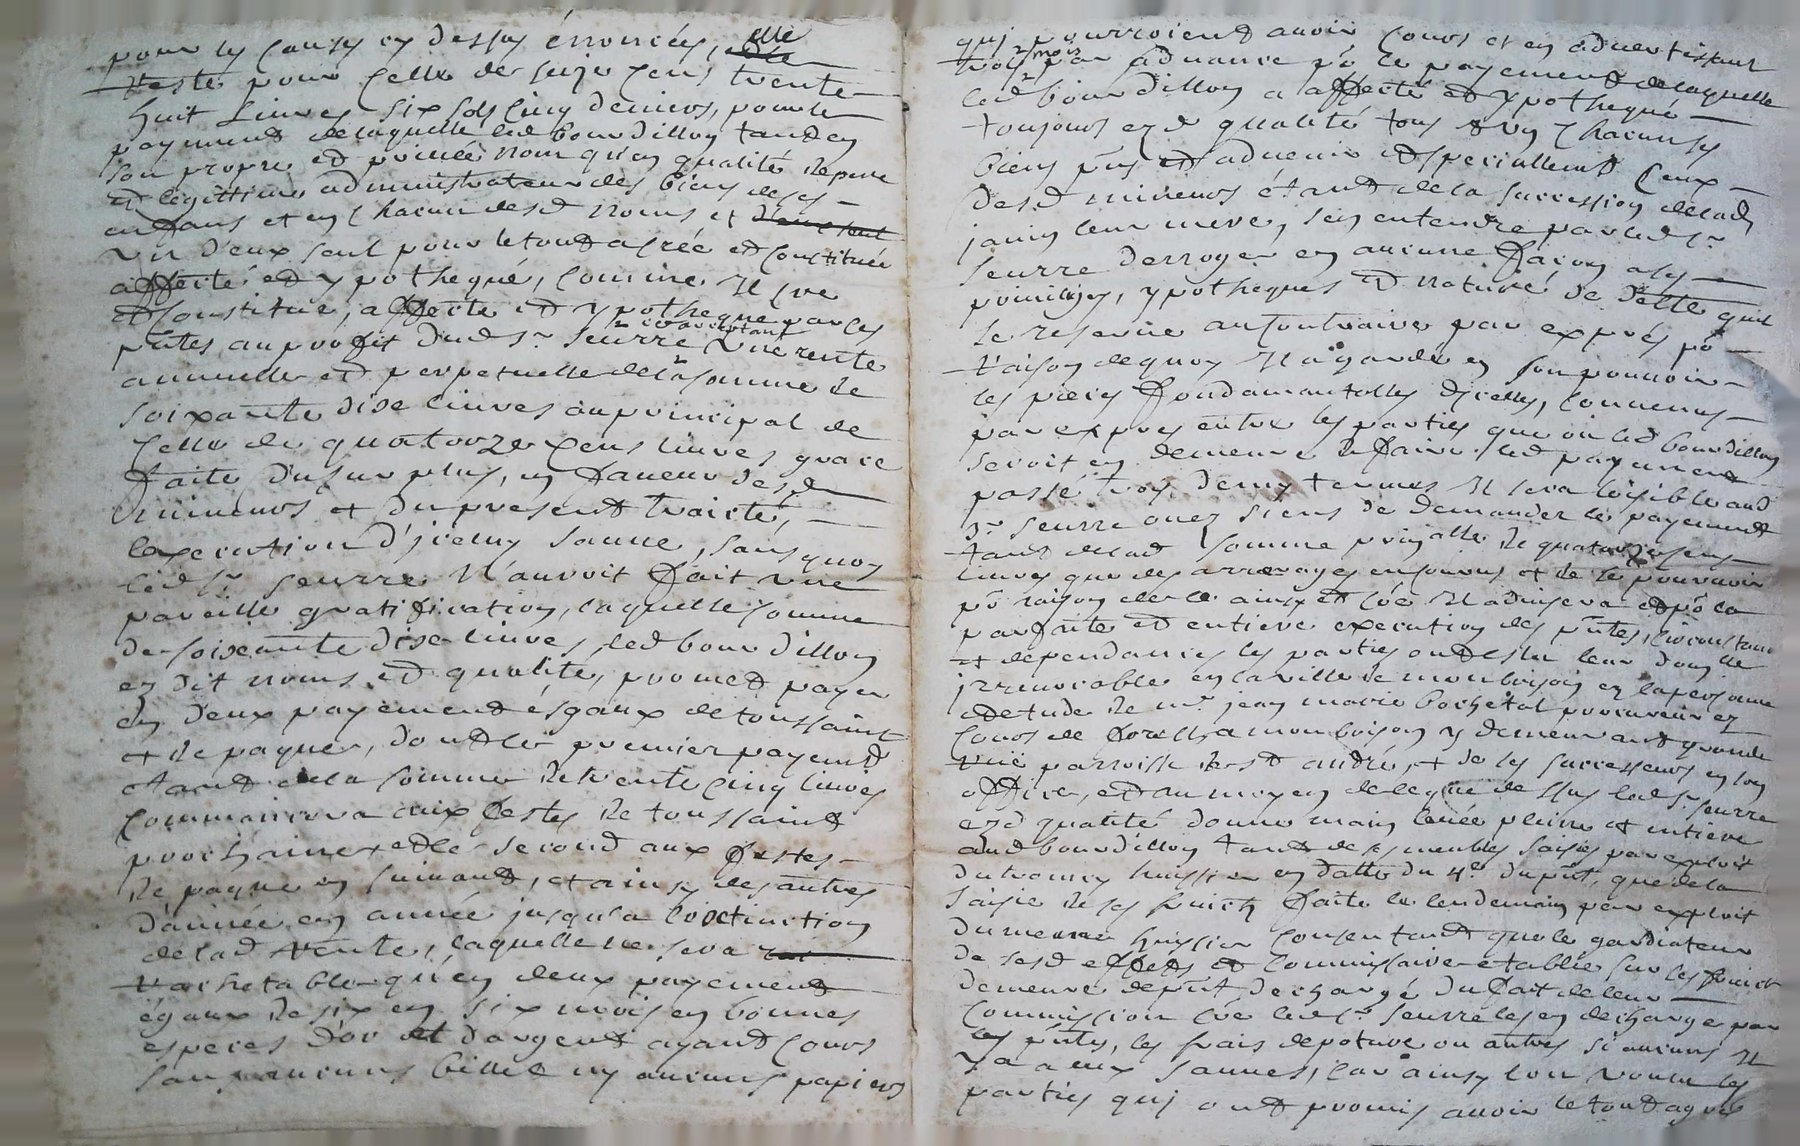 pour les causes cy dessus énoncées, elle
reste pour celle de seize cens trente
huit livres six sols cinq deniers, pour le
payement de laquelle led bourdillon tand en
son propre et privée nom qu'en qualité de pere
et legittime administrateur des biens de ses
enfans et en chacun desd noms et
un d'eux seul pour le tout a créé et constitué
affecté et ypothequé, comme Il cree
et constitue, affecte et ypotheque par ces
pntes, au profit dud sr seurre acceptant une rente
annuelle et perpetuelle de la somme de
soixante dise livres au principal de
celle de quatorze cens livres grace
faite du surplus, en faveur desd
mineurs et du present traicté,
lexecution d'jceluy sauve, sans quoy
led sr seurre N'auroit fait une
pareille gratification, laquelle somme
de soixante dise livres, led bourdillon
ez dit noms et qualité, promet payer
en deux payement ésgaux de toussaint
et de paques, dont le premier payemt
étant de la somme de trente cinq livres
commancera aux festes de toussaint
prochaine et le second aux festes
de paque en suivant, et ainsy des autres
d'année en année jusqu'a l'extinction
de lad rente, laquelle ne sera
rachetable qu'en deux payement
égaux de six en six mois en bonnes
especes d'or et d'argent ayant cours
sans aucuns billet ny aucuns papiers
qui pourroient avoir cours et en advertissant
trois mois par advance po le payement de laquelle
led bourdillon a affecté et ypothequé
toujours ezd qualité tous et un chacun ses
biens pnts et advenir et specialement ceux
desd mineurs étant de la succession de lad
janin leur mere, sein entendre par led sr
seurre derroger en aucune facon a ses
priviliges, ypotheques et nature de dette quil
se reserve au Contraire par exprés po
raison de quoy Il a gardé en son pouvoir
les pieces fondamantalles d'jcelles, convenus
par exprés entre les parties que ou led bourdillon
seroit en demeure de faire led payement
passé trois demy termes Il sera loisible aud
sr seurre ou ez siens de demander le payement
tant de lad somme prinpalle de quatorze cens
livres que des arrerages encourus et de se pourvoir
po raison de ce ainsy et coe Il advisera et po la
parfaite et entiere execution des pntes, circonstances
et dependances les parties ont eslu leur domille
irrevocable en la ville de montbrison en la personne
et etude de me jean marie bochetal procureur ez
cours de forest a montbrison y demeurant grande
rue parroisse de st andré, et de ses successeurs en son
office, et au moyen de le que dessus led sr seurre
ezd qualité donne main levée pleine et entiere
aud bourdillon tant de ses meubles saisies par exploit
du huissier en datte du 4e du pnt, que de la
saisie de ses fruits faite le lendemain par exploit
du meme huissier consentant que le gardiateur
de sesd effets et commissaire etablie sur les fruits
demeure depnt dechargé du fait de leur
Commission coe led sr seurre les en decharge par
les pntes, les frais de poture ou autres si aucuns Il
y a a eux sauves, car ainsy l'on voulu les
parties qui ont promis avoir le tout agreé